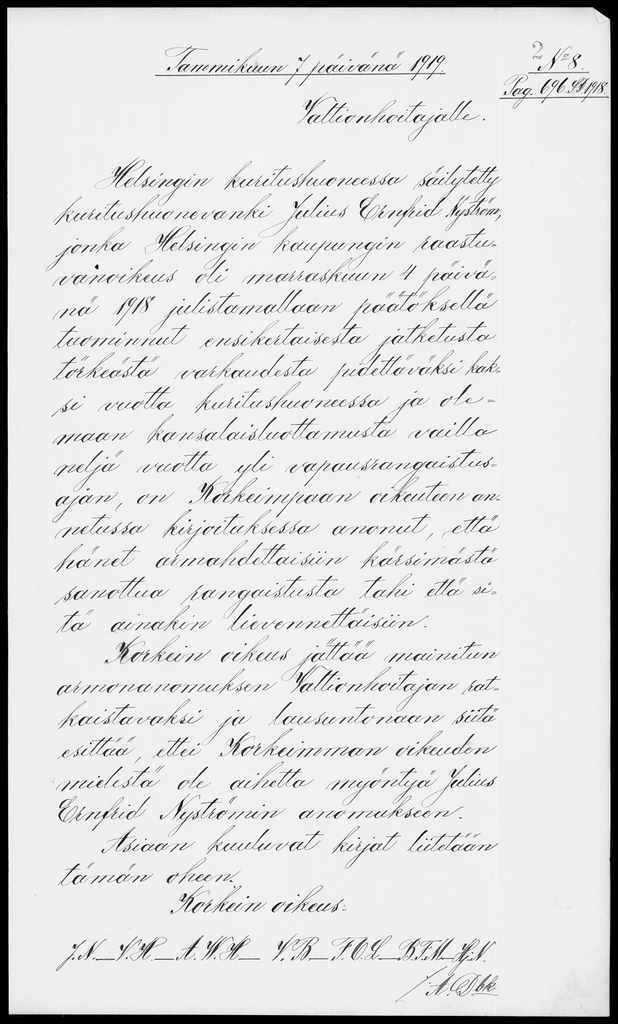 Tammikuun 7 päivänä 1919.
2 No 8.
Pag. 696 1918.
Valtionhoitajalle.
Helsingin kuritushuoneessa säilytetty
kuritushuonevanki Julius Ernfrid Nyström,
jonka Helsingin kaupungin raastu-
vanoikeus oli marraskuun 4 päivä-
nä 1918 julistamallaan päätöksellä
tuominnut ensikertaisesta jatketusta
törkeästä varkaudesta pidettäväksi kak-
si vuotta kuritushuoneessa ja ole-
maan kansalaisluottamusta vailla
neljä vuotta yli vapausrangaistus-
ajan, on Korkeimpaan oikeuteen an-
netussa kirjoituksessa anonut, että
hänet armahdettaisiin kärsimästä
sanottua rangaistusta tahi että si-
tä ainakin lievennettäisiin.
Korkein oikeus jättää mainitun
armonanomuksen Valtionhoitajan rat-
kaistavaksi ja lausuntonaan siitä
esittää, ettei Korkeimman oikeuden
mielestä ole aihetta myöntyä Julius
Ernfrid Nyströmin anomukseen.
Asiaan kuuluvat kirjat liitetään
tämän oheen.
Korkein oikeus:
J.N.—V.H.—A.W.H—V.B—F.O.L.—B.F.M—Hj.N.
/A. Dbk